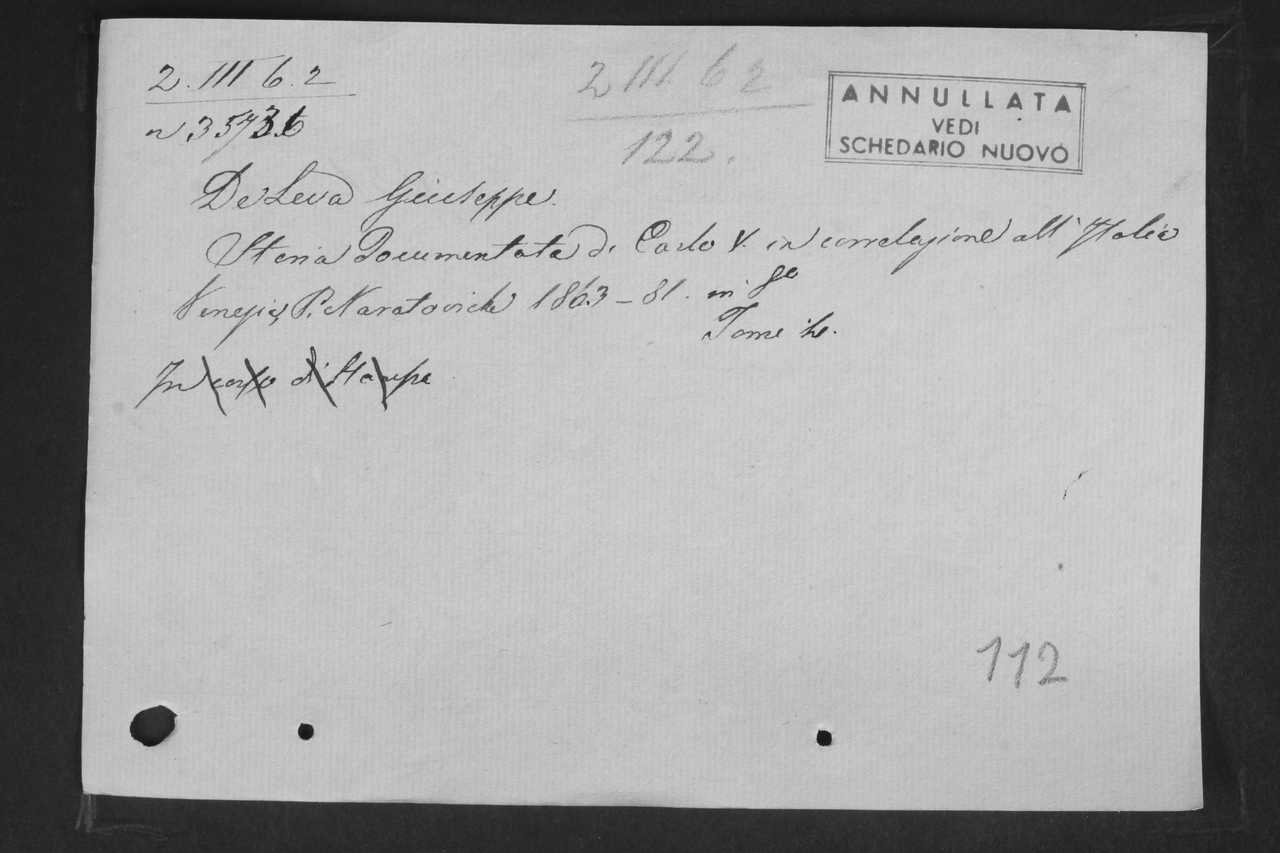 2. III 6. 2
2 III. 6 2
122.
ANNULLATA
VEDI
SCHEDARIO NUOVO
De Leva Giuseppe.
Storia Documentata di Carlo V. in correlazione all'Italia
Venezia, P. Naratovich 1863-81. in 8º
Tome
In corso di Stampa
112